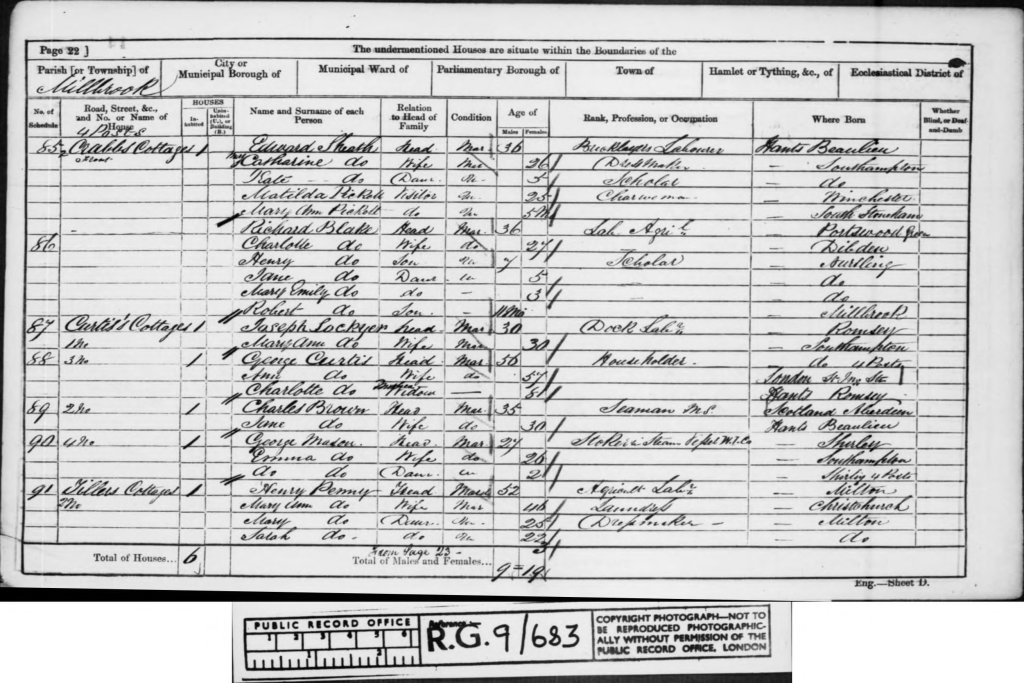 Page 22 ]
The undermentioned Houses are situate within the Boundaries of the
Parish [or Township] of
City or Municipal Borough of
Municipal Ward of
Parliamentary Borough of
Town of
Hamlet or Tything, &c., of
Ecclesiastical District of
Millbrook
No. of Schedule
Road, Street, &c., and No. or Name of House
HOUSES
Inhabited
Uninhabited (U.), or Building (B.)
Name and Surname of each Person
Relation to Head of Family
Condition
Age of
Males
Females
Rank, Profession, or Occupation
Where Born
Whether Blind, or Deaf-and-Dumb
4 Posts
85 Crabbs Cottages 1 Edward Head Mar 36 Bricklayers Labourer Hants Beaulieu
Catharine do Wife Mar 26 — Southampton
Kate do Daur Un 5 Scholar — do
Matilda Pickett Visitor Un 25 Charwoman — Winchester
Mary Ann Pickett do Un — South Stoneham
Richard Blake Head Mar 36 Lab Agri — Portswood Green
86 Charlotte do Wife do 27 — Dibden
Henry do Son Un 7 Scholar — Nursling
Jane do Daur 5 — do
Mary Emily do do — 3 — do
Robert do Son — 11 Mo — Millbrook
87 Curtis's Cottages 1 Joseph Lockyer Head Mar 30 Dock Labr — Romsey
1 No Mary Ann do Wife Mar 30 — Southampton
88 3 No 1 George Curtis Head Mar 56 Householder — do 4 Posts
Ann do Wife do 57 London
Charlotte do Widow — Hants Romsey
89 2 No 1 Charles Brown Head Mar 35 Seaman Scotland Aberdeen
Jane do Wife do 30 Hants Beaulieu
90 4 No 1 George Mason Head Mar 27 — Shirley
Emma do Wife do 26 — Southampton
do do Daur 2 — Shirley 4 Posts
91 Tillers Cottages 1 Henry Penny Head 52 Agricult Labr — Milton
2 No Mary Ann do Wife Mar 46 Laundress — Christchurch
Mary do Daur Un 25 Dressmaker — Milton
Sarah do do Un 22 — do
Total of Houses... 6
from Page 23 - 3
Total of Males and Females... 9 = 19
Eng.—Sheet D.
PUBLIC RECORD OFFICE
1 2 3 4 5 6
1 2
Reference:-
R.G. 9/683
COPYRIGHT PHOTOGRAPH—NOT TO
BE REPRODUCED PHOTOGRAPHIC-
ALLY WITHOUT PERMISSION OF THE
PUBLIC RECORD OFFICE, LONDON